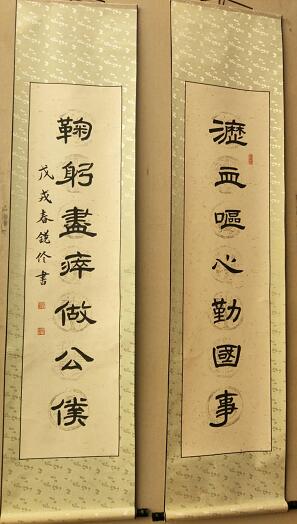 瀝血嘔心勤國事
鞠躬盡瘁做公僕
戊戌春鋭伶書